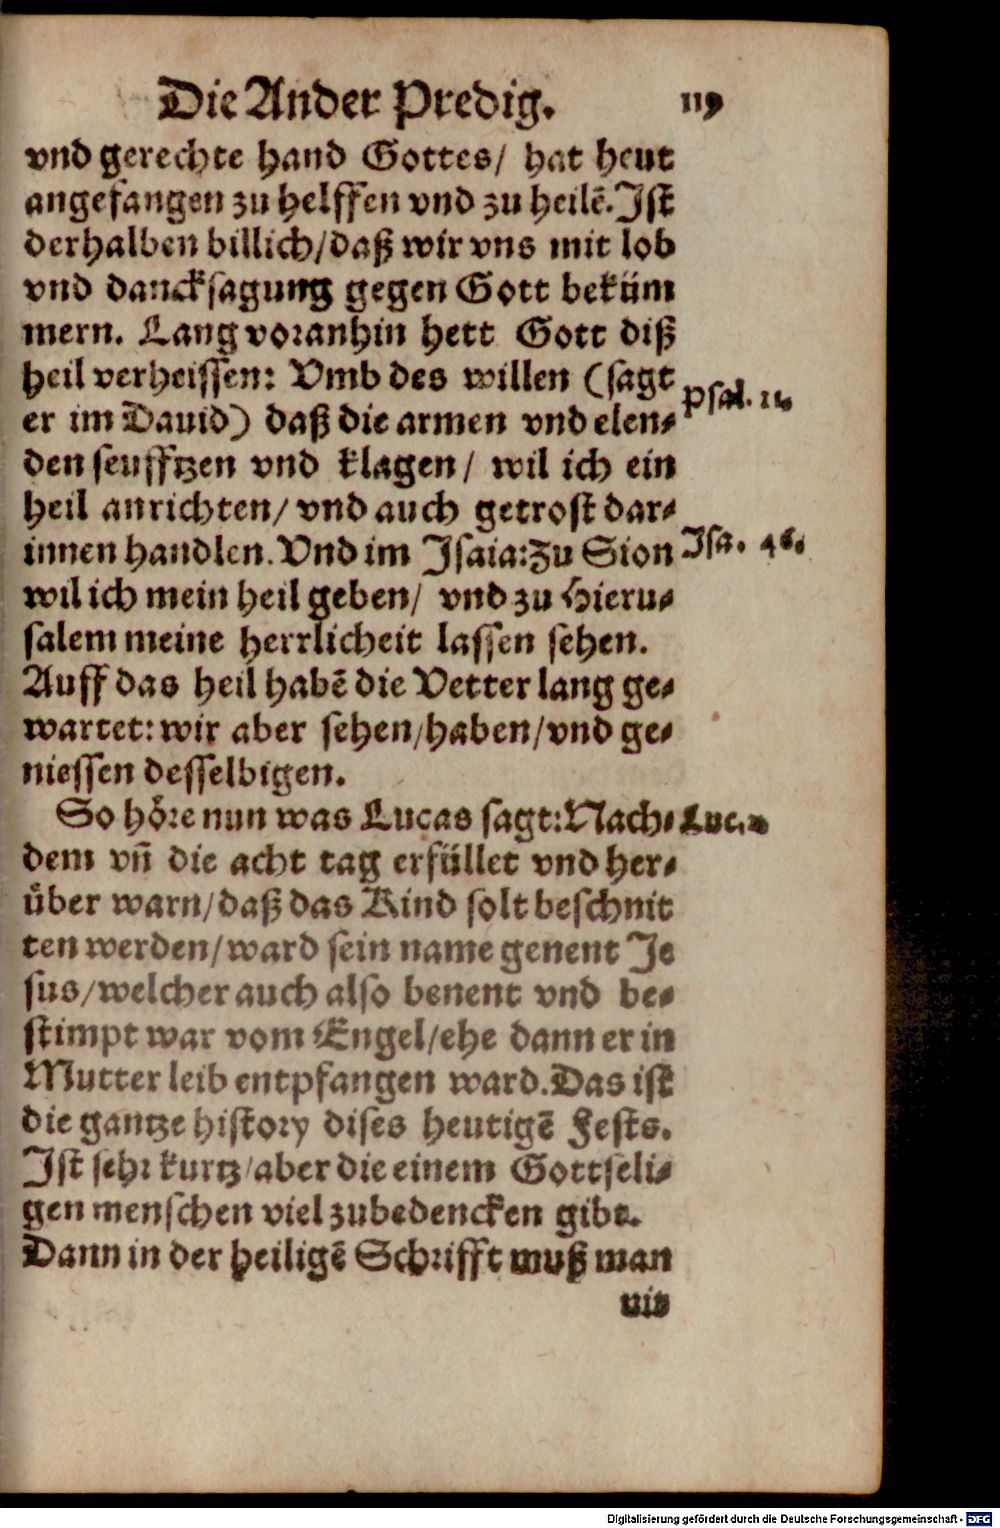 Die Ander Predig. 119
vnd gerechte hand Gottes/ hat heut
angefangen zu helffen vnd zu heilē. Jst
derhalben billich/ daß wir vns mit lob
vnd dancksagung gegen Gott beküm
mern. Lang voranhin hett Gott diß
heil verheissen: Vmb des willen (sagt
er im Dauid) daß die armen vnd elen-
Psal. 11.
den seufftzen vnd klagen/ wil ich ein
heil anrichten/ vnd auch getrost dar-
innen handlen. Vnd im Jsaia: Zu Sion
Jsa. 46.
wil ich mein heil geben/ vnd zu Hieru-
salem meine herrlicheit lassen sehen.
Auff das heil habē die Vetter lang ge-
wartet: wir aber sehen/ haben/ vnd ge-
niessen desselbigen.
So höre nun was Lucas sagt: Nach-
Luc. 2
dem vn̄ die acht tag erfüllet vnd her-
über warn/ daß das Kind solt beschnit
ten werden/ ward sein name genent Je
sus/ welcher auch also benent vnd be-
stimpt war vom Engel/ ehe dann er in
Mutter leib entpfangen ward. Das ist
die gantze history dises heutigē Fests.
Jst sehr kurtz/ aber die einem Gottseli-
gen menschen viel zubedencken gibt.
Dann in der heiligē Schrifft muß man
nit
Digitalisierung gefördert durch die Deutsche Forschungsgemeinschaft - DFG